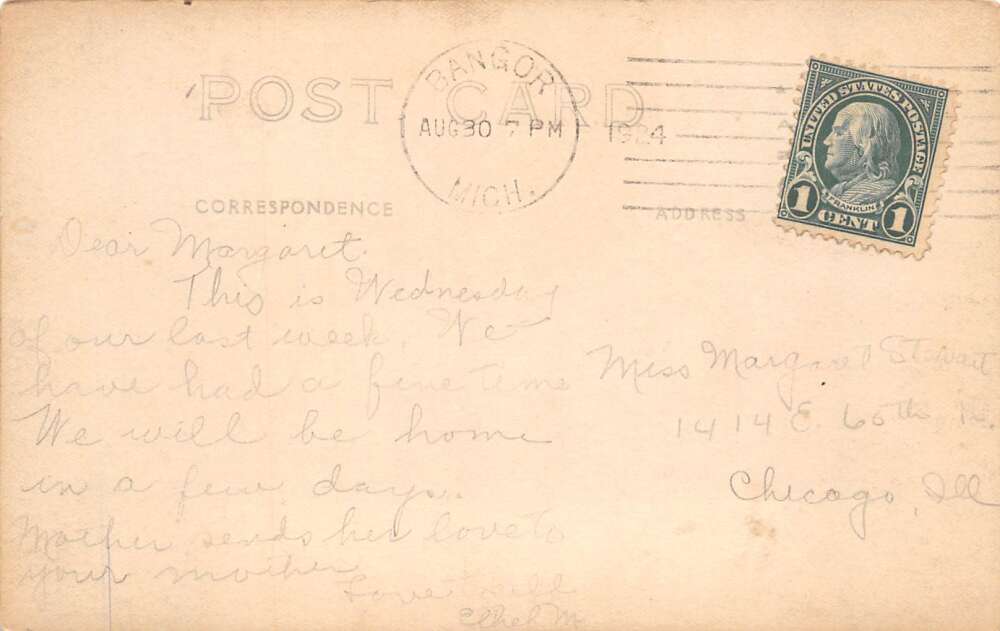 POST CARD
BANGOR
AUG 30 7 PM
1924
MICH.
UNITED STATES POSTAGE
FRANKLIN
1 CENT 1
CORRESPONDENCE
ADDRESS
Dear Margaret.
This is Wednesday
of our last week. We
have had a fine time
We will be home
in a few days.
Mother sends her love to
your mother
Love
Ethel M
Miss Margaret Stewart
1414 E. 65th
Chicago, Ill